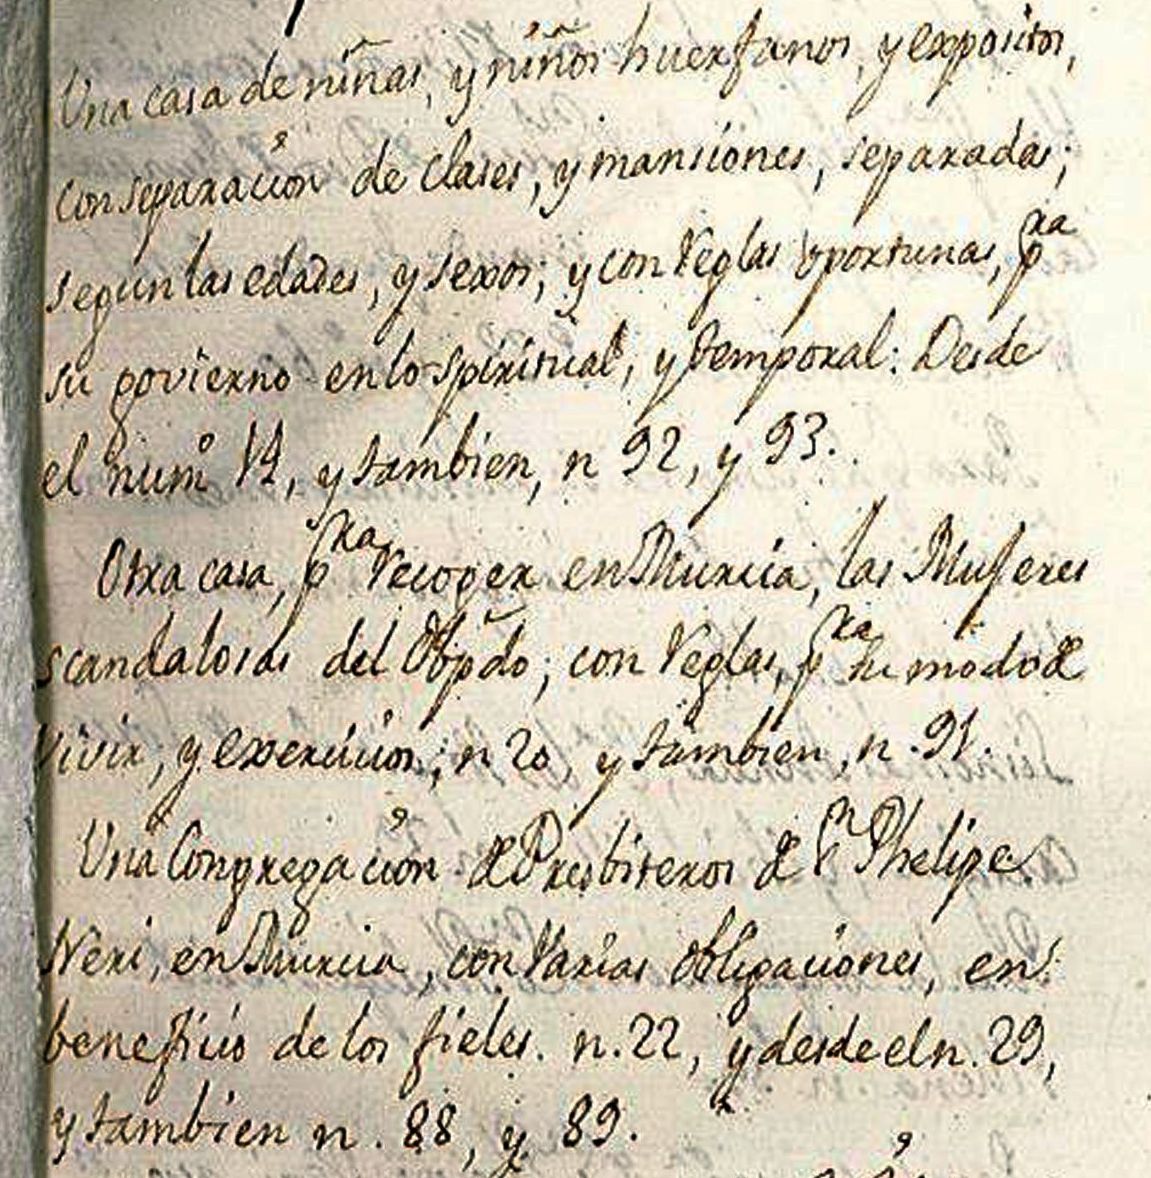 Una casa de niñas, y niños huerfanos, y expositos,
con separacion de clases, y mansiones, separadas;
segun las edades, y sexos; y con reglas oportunas, p.ra
su govierno en lo spiritual, y temporal: Desde
el num.o 14, y tambien, n 92, y 93.
Otra casa, p.ra recoger en Murcia, las Mugeres
scandalosas del Obp̃do; con reglas, p.ra su modo de
vivir, y exercicios; n 20 y tambien, n. 91.
Una Congregacion de Presbiteros de S.n Phelipe
Neri, en Murcia, con varias obligaciones, en
beneficio de los fieles. n. 22, y desde el n. 29,
y tambien n. 88, y 89.